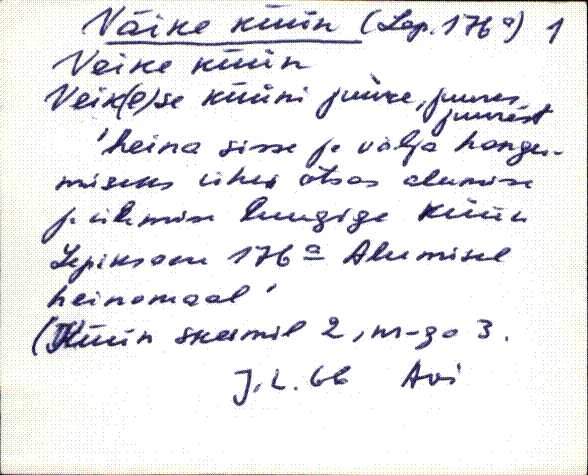 Väike küün (Lep. 176ª) 1
Veike küün
Veik(e)se küüni juure, juures,
juurest
'heina sisse ja välja hangu-
miseks ühes otsas alumise
ja ülemise luugiga küün
Lepiksaare 176ª Alumisel
heinamaal'
(Küün skeemil 2, nr-ga 3.
J.L. 66 Avi